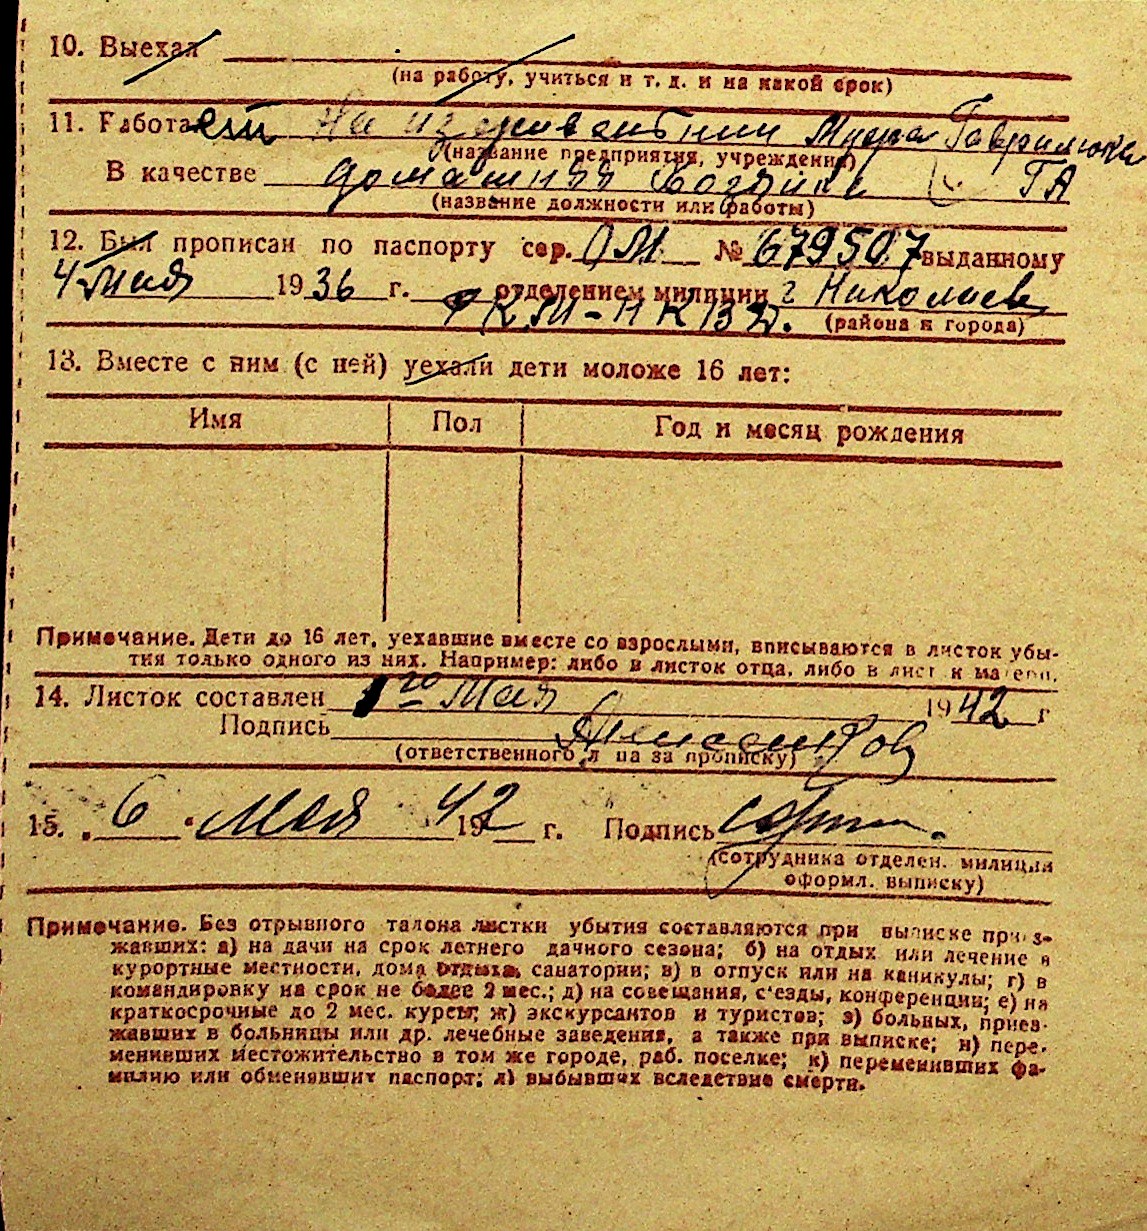 10. Выехал
(на работу, учиться и т. д. и на какой срок)
11. Работает На иждивении Мужа Гаврилюка
(название предприятия, учреждения)
В качестве домашняя хозяйка ГА
(название должности или работы)
12. Был прописан по паспорту сер. ОМ № 679507 выданному
4 Мая 1936 г. отделением милиции г Николаев
РКМ-НКВД. (района и города)
13. Вместе с ним (с ней) уехали дети моложе 16 лет:
Имя Пол Год и месяц рождения
Примечание. Дети до 16 лет, уехавшие вместе со взрослыми, вписываются в листок убы-
тия только одного из них. Например: либо в листок отца, либо в листок матери.
14. Листок составлен 1го Мая 1942 г
Подпись
(ответственного лица за прописку)
15. „6“ Мая 1942 г. Подпись
(сотрудника отделен. милиции
оформл. выписку)
Примечание. Без отрывного талона листки убытия составляются при выписке приез-
жавших: а) на дачи на срок летнего дачного сезона; б) на отдых или лечение в
курортные местности, дома отдыха, санатории; в) в отпуск или на каникулы; г) в
командировку на срок не более 2 мес.; д) на совещания, с'езды, конференции; е) на
краткосрочные до 2 мес. курсы; ж) экскурсантов и туристов; з) больных, приез-
жавших в больницы или др. лечебные заведения, а также при выписке; и) пере-
менивших местожительство в том же городе, раб. поселке; к) переменивших фа-
милию или обменявших паспорт; л) выбывших вследствие смерти.